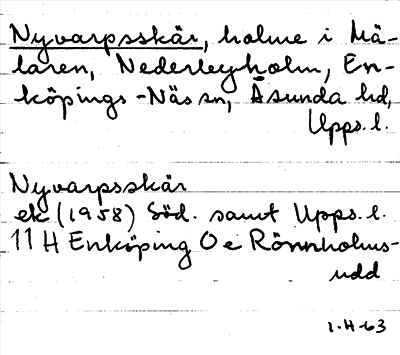 Nyvarpsskär, holme i Mä-
laren, Nederleyholm, En-
köpings-Näs sn, Åsunda hd,
Upps. l.
Nyvarpsskär
ek (1958) Söd. samt Upps. l.
11 H Enköping O e Rönnholms-
udd
1-H-63